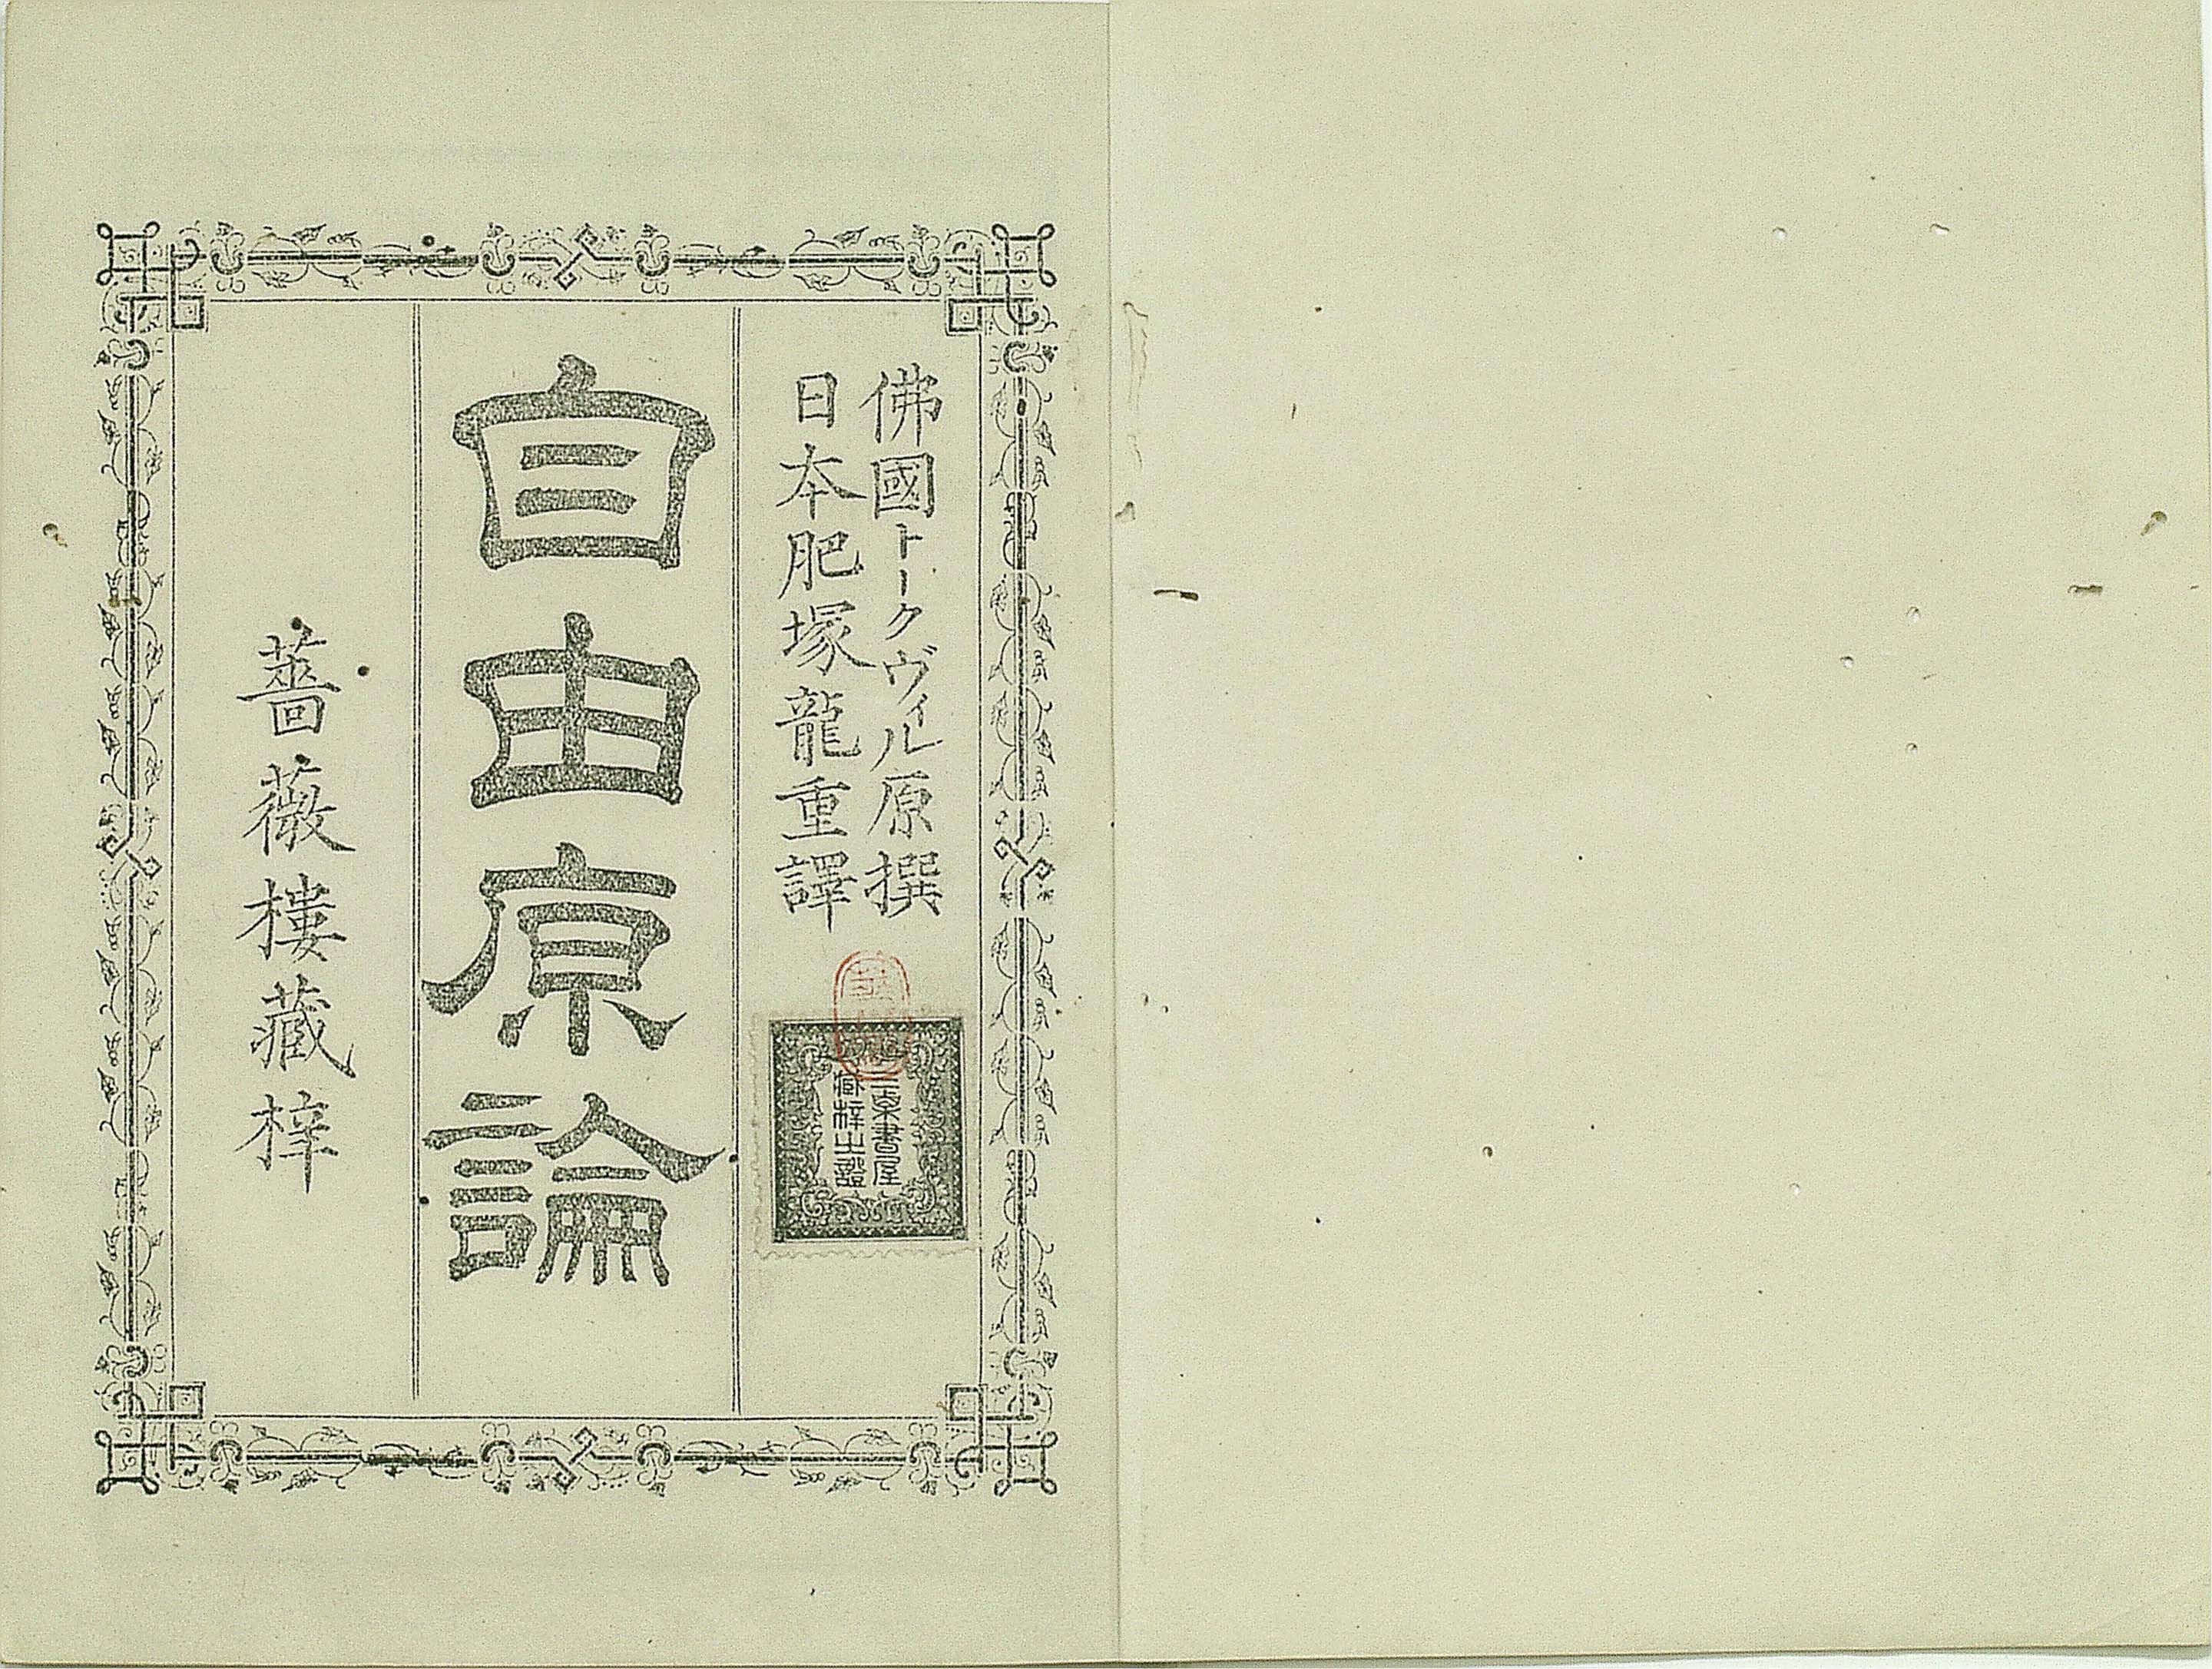 佛國トークヴィル原撰
日本肥塚龍重譯
書屋
藏梓之證
自由原論
薔薇樓藏梓